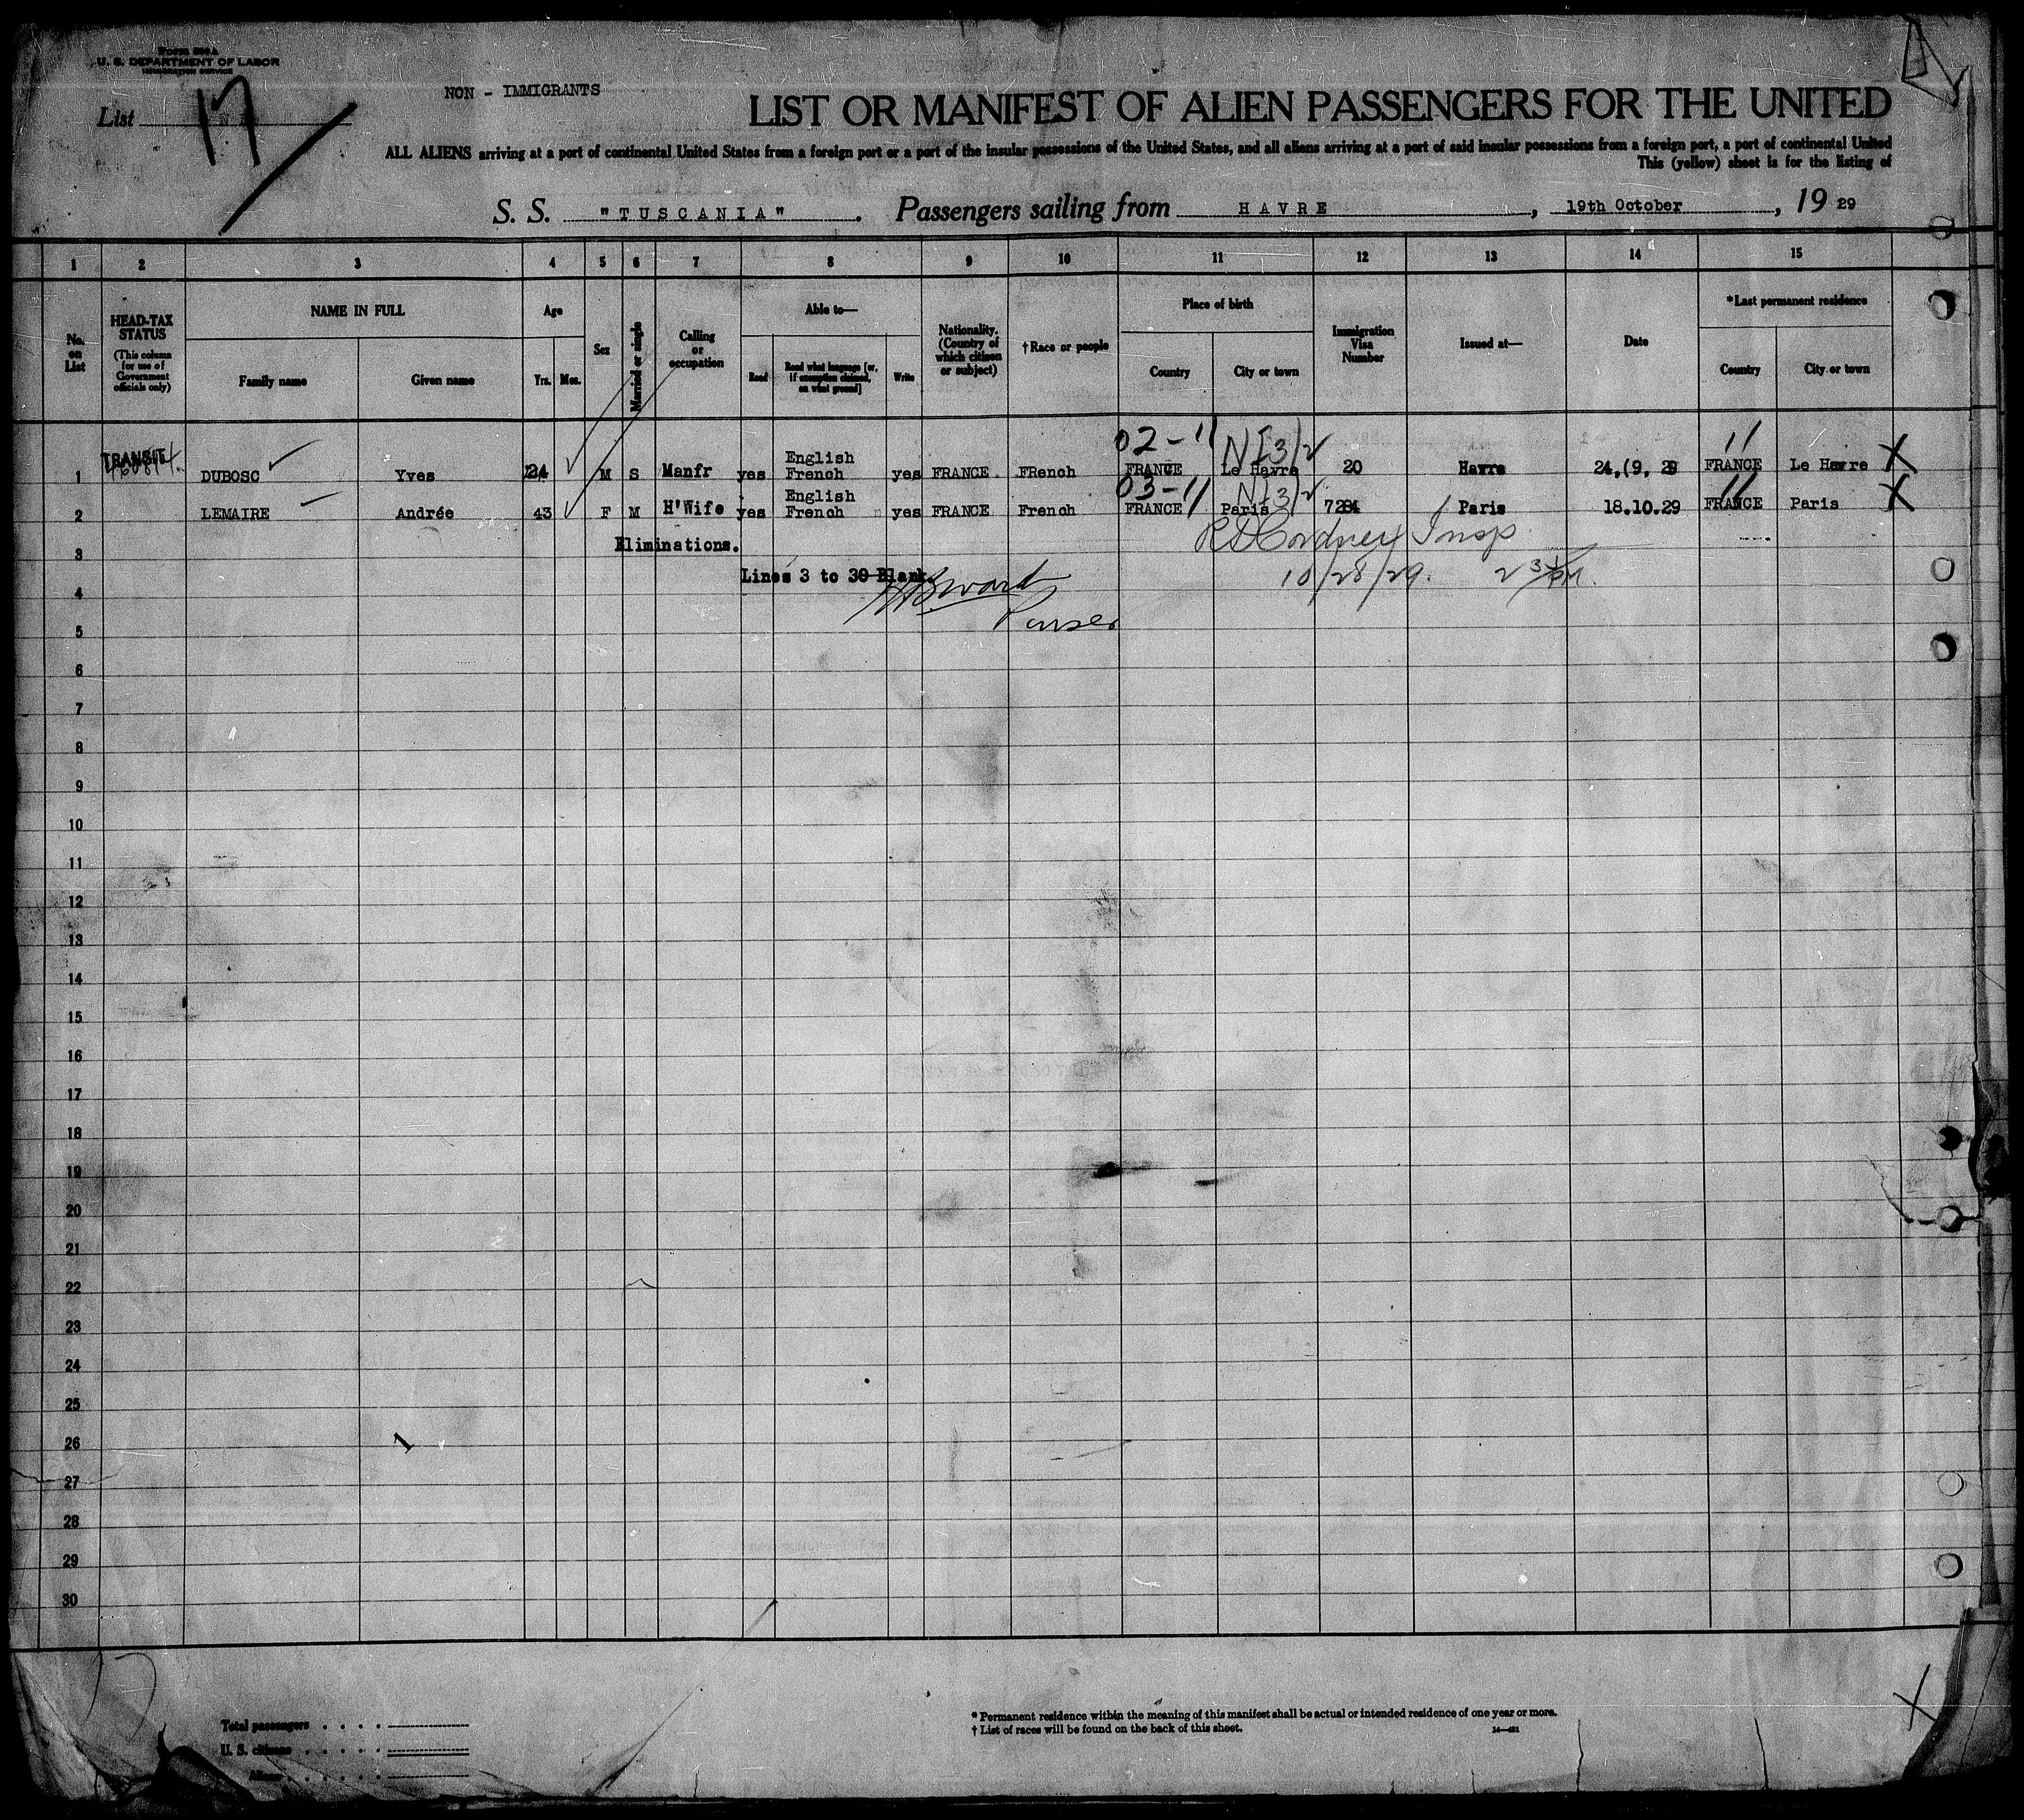 Form 500 A
U. S. DEPARTMENT OF LABOR
IMMIGRATION SERVICE
List 17
NON - IMMIGRANTS
LIST OR MANIFEST OF ALIEN PASSENGERS FOR THE UNITED
ALL ALIENS arriving at a port of continental United States from a foreign port or a port of the insular possessions of the United States, and all aliens arriving at a port of said insular possessions from a foreign port, a port of continental United
This (yellow) sheet is for the listing of
S. S. "TUSCANIA" . Passengers sailing from HAVRE , 19th October , 19 29
1 2 3 4 5 6 7 8 9 10 11 12 13 14 15
No. on List
HEAD-TAX STATUS
(This column for use of Government officials only)
NAME IN FULL
Family name
Given name
Age
Yrs. Mos.
Sex
Married or single
Calling or occupation
Able to—
Read
Read what language [or, if exemption claimed, on what ground]
Write
Nationality. (Country of which citizen or subject)
† Race or people
Place of birth
Country
City or town
Immigration Visa Number
Issued at—
Date
* Last permanent residence
Country
City or town
02-11 11
1 TRANSIT DUBOSC Yves 24 M S Manfr yes English French yes FRANCE FRench FRANCE Le Havre 20 Havre 24,(9, 29 FRANCE Le Havre X
03-11 11
2 LEMAIRE Andrée 43 F M H'Wife yes English French yes FRANCE French FRANCE Paris Paris 18.10.29 FRANCE Paris X
3 Eliminations.
Insp.
Lines 3 to 30 Blank.
10/28/29.
4
Purser
5
6
7
8
9
10
11
12
13
14
15
16
17
18
19
20
21
22
23
24
25
26
27
28
29
30
17
Total passengers
U. S. citizens
Aliens
* Permanent residence within the meaning of this manifest shall be actual or intended residence of one year or more.
† List of races will be found on the back of this sheet.
X